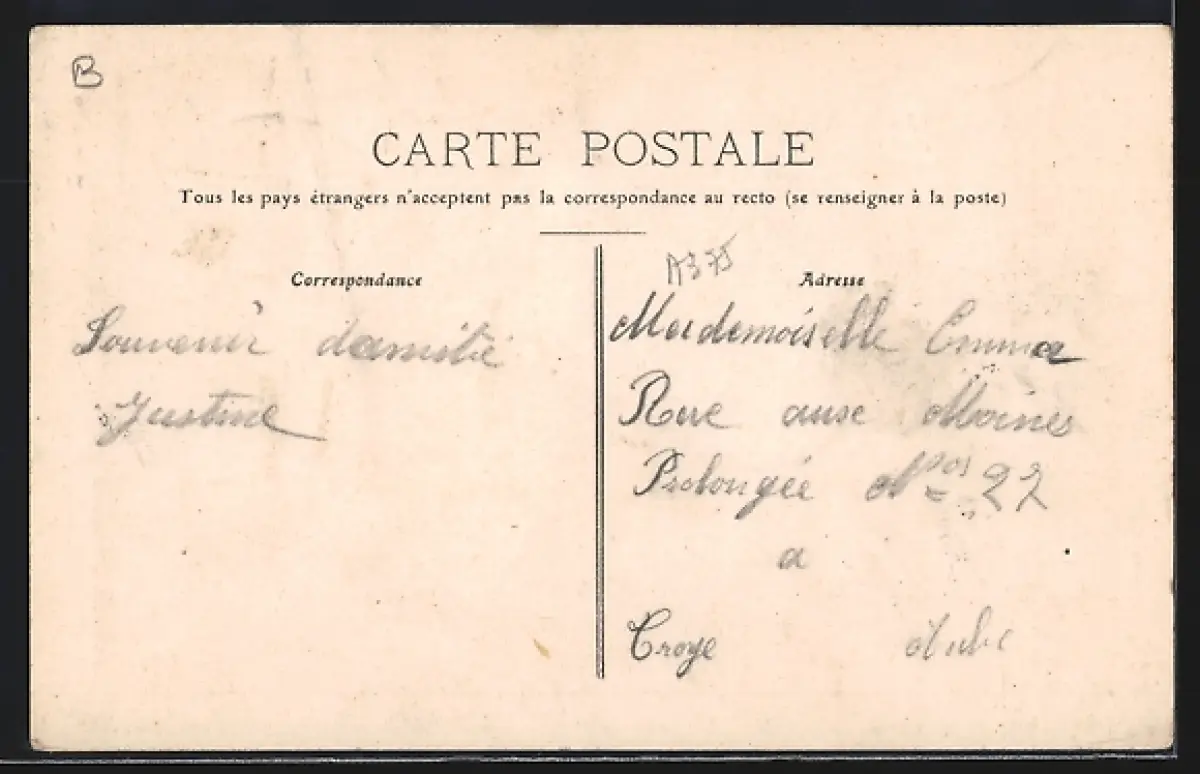 B
CARTE POSTALE
Tous les pays étrangers n'acceptent pas la correspondance au recto (se renseigner à la poste)
Correspondance
A375
Adresse
Souvenir damitié
Justine
Mademoiselle Emma
Rue ause Moines
Prolongée Nos 22
a
Troye Aube